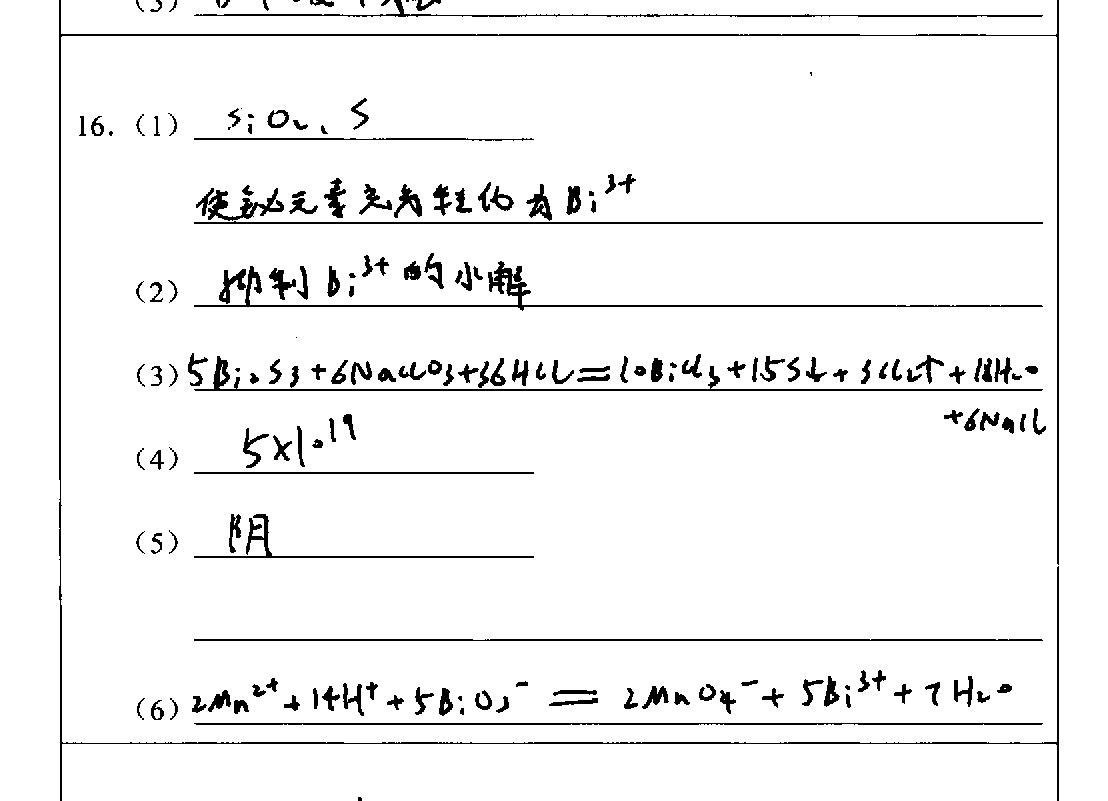 (3)
16. (1) SiO₂、S
使铋元素充分转化为Bi³⁺
(2) 抑制Bi³⁺的水解
(3) 5Bi₂S₃+6NaClO₃+36HCl=10BiCl₃+15S↓+3Cl₂↑+18H₂O
+6NaCl
(4) 5×10¹⁹
(5) 阴
(6) 2Mn²⁺+14H⁺+5BiO₃⁻=2MnO₄⁻+5Bi³⁺+7H₂O